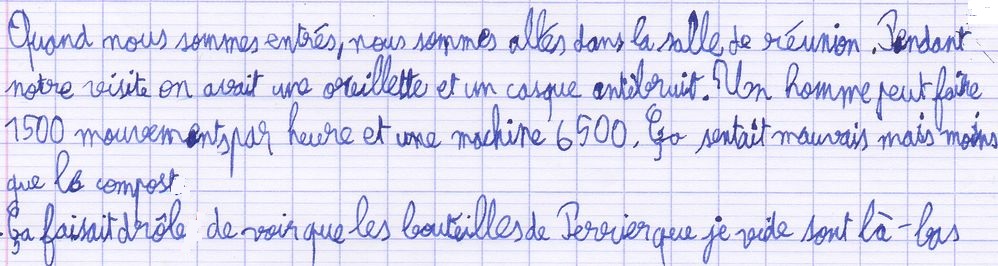 Quand nous sommes entrés, nous sommes allés dans la salle de réunion. Pendant
notre visite on avait une oreillette et un casque antibruit. Un homme peut faire
1500 mouvements par heure et une machine 6500. Ça sentait mauvais mais moins
que le compost.
Ça faisait drôle de voir que les bouteilles de Perrier que je vide sont là-bas